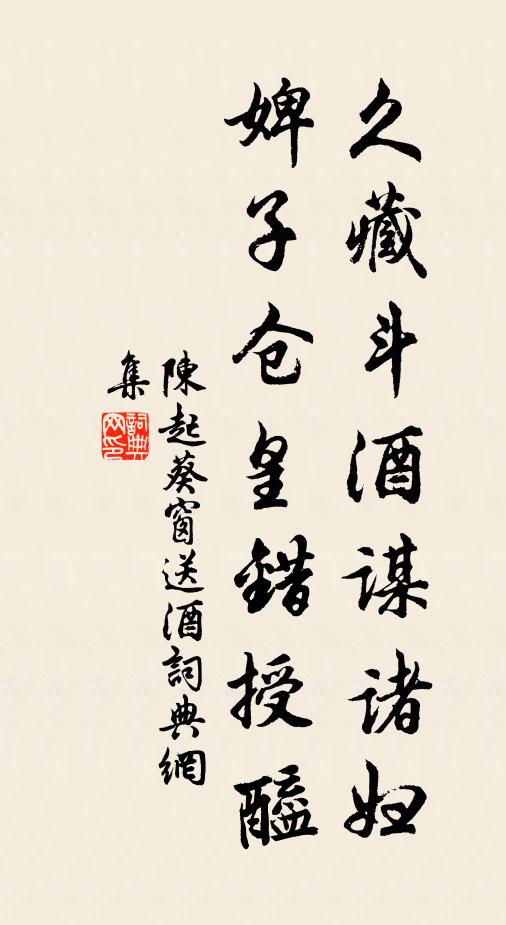 久藏斗酒謀諸妇
婢子仓皇錯授醯
陳起葵窗送酒詞典網
集
詞典网印